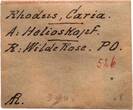 Rhodus, Caria.
A: Helioskopf.
R: Wilde Rose. PO.
526
R.